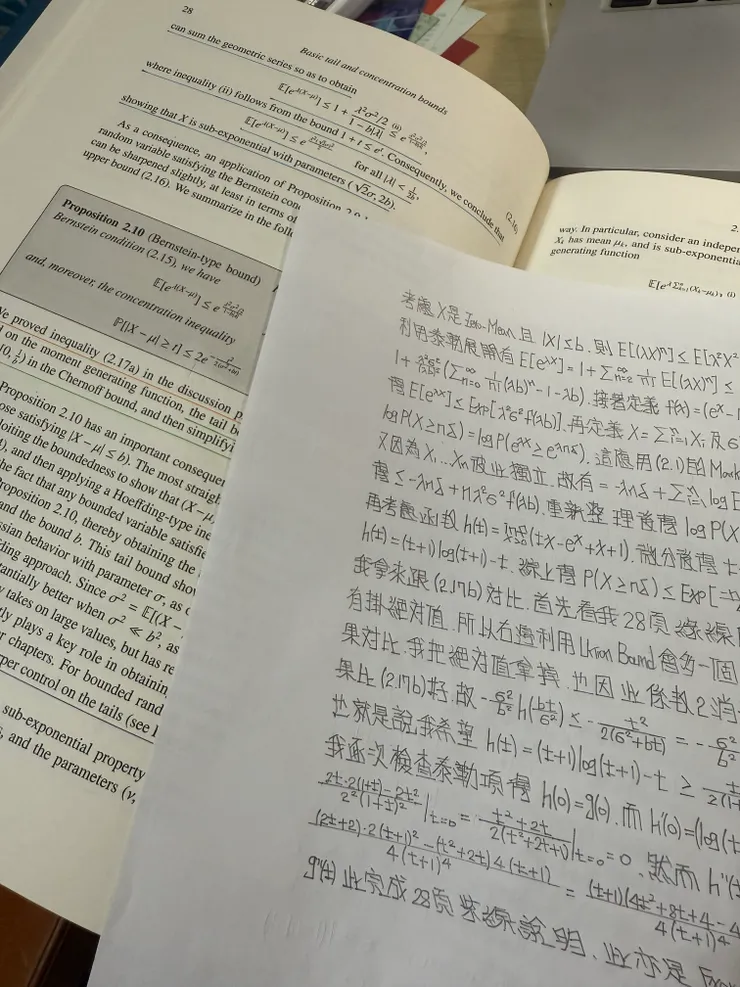 28
Basic tail and concentration bounds
can sum the geometric series so as to obtain
E[e^{λ(X−μ)}] ≤ 1 + \frac{λ²σ²/2}{1 − b|λ|} ≤^{(ii)} e^{\frac{λ²σ²/2}{1−b|λ|}},
where inequality (ii) follows from the bound 1 + t ≤ e^t. Consequently, we conclude that
E[e^{λ(X−μ)}] ≤ e^{\frac{λ²(√2σ)²}{2}} for all |λ| < \frac{1}{2b}, (2.16)
showing that X is sub-exponential with parameters (√2σ, 2b).
As a consequence, an application of Proposition
random variable satisfying the Bernstein
can be sharpened slightly, at least in terms of
upper bound (2.16). We summarize in the
Proposition 2.10 (Bernstein-type bound)
Bernstein condition (2.15), we have
E[e^{λ(X−μ)}] ≤ e
and, moreover, the concentration inequality
P[|X − μ| ≥ t] ≤ 2e^{−\frac{t²}{2(σ²+bt)}}
We proved inequality (2.17a) in the discussion
on the moment generating function, the tail
in the Chernoff bound, and then
Proposition 2.10 has an important
satisfying |X − μ| ≤ b). The most
the boundedness to show that
and then applying a Hoeffding-type
the fact that any bounded variable
Proposition 2.10, thereby obtaining the
and the bound b. This tail bound
behavior with parameter σ, as
approach. Since σ² = E[(X −
better when σ² ≪ b², as
takes on large values, but has
plays a key role in obtaining
chapters. For bounded
control on the tails (see
sub-exponential property
and the parameters (ν,
2.
way. In particular, consider an
X_i has mean μ_i, and is
generating function
E[e^{λ Σ_{i=1}^n (X_i−μ_i)}] (i)
考慮X是Zero-Mean且|X|≤b.則E[(λX)^n]≤E[λ²X²
利用泰勒展開有E[e^{λX}]=1+Σ_{n=2}^∞ \frac{1}{n!}E[(λX)^n]≤
(Σ_{n=0}^∞ \frac{1}{n!}(λb)^n-1-λb).接著定義f(x)=(e^x-1
得E[e^{λX}]≤Exp[λ²σ²f(λb)].再定義X=Σ_{i=1}^n X_i及σ
logP(X≥nδ)=logP(e^{λX}≥e^{λnδ}).這應用(2.1)的Mark
又因為X_1...X_n彼此獨立.故有=-λnδ+Σ_{i=1}^n log E
得≤-λnδ+nλ²σ²f(λb).重新整理後得logP(X
再考慮函數h(t)=(tx-e^x+x+1).微分後得t-
h(t)=(t+1)log(t+1)-t.綜上得P(X≥nδ)≤Exp[
我拿來跟(2.17b)對比.首先看我28頁綠線
有掛絕對值.所以右邊利用Union Bound會多一個
果對比.我把絕對值拿掉.也因此係數2消
果比(2.17b)好.故-\frac{σ²}{b²}h(\frac{bt}{σ²})≤-\frac{t²}{2(σ²+bt)}=-\frac{σ²}{b²}
也就是說我希望h(t)=(t+1)log(t+1)-t≥
我逐次檢查泰勒項得h(0)=g(0).而h'(0)=(log(t
\frac{2t·2(1+t)-2t²}{2²(1+t)²}|_{t=0}=\frac{t²+2t}{2(t²+2t+1)}|_{t=0}=0.然而h''(t
\frac{(2t+2)·2(t+1)²-(t²+2t)4(t+1)}{4(t+1)⁴}=\frac{(t+1)(4t²+8t+4-4}{4(t+1)⁴}
g''(t)此完成28頁紫線說明.此亦是